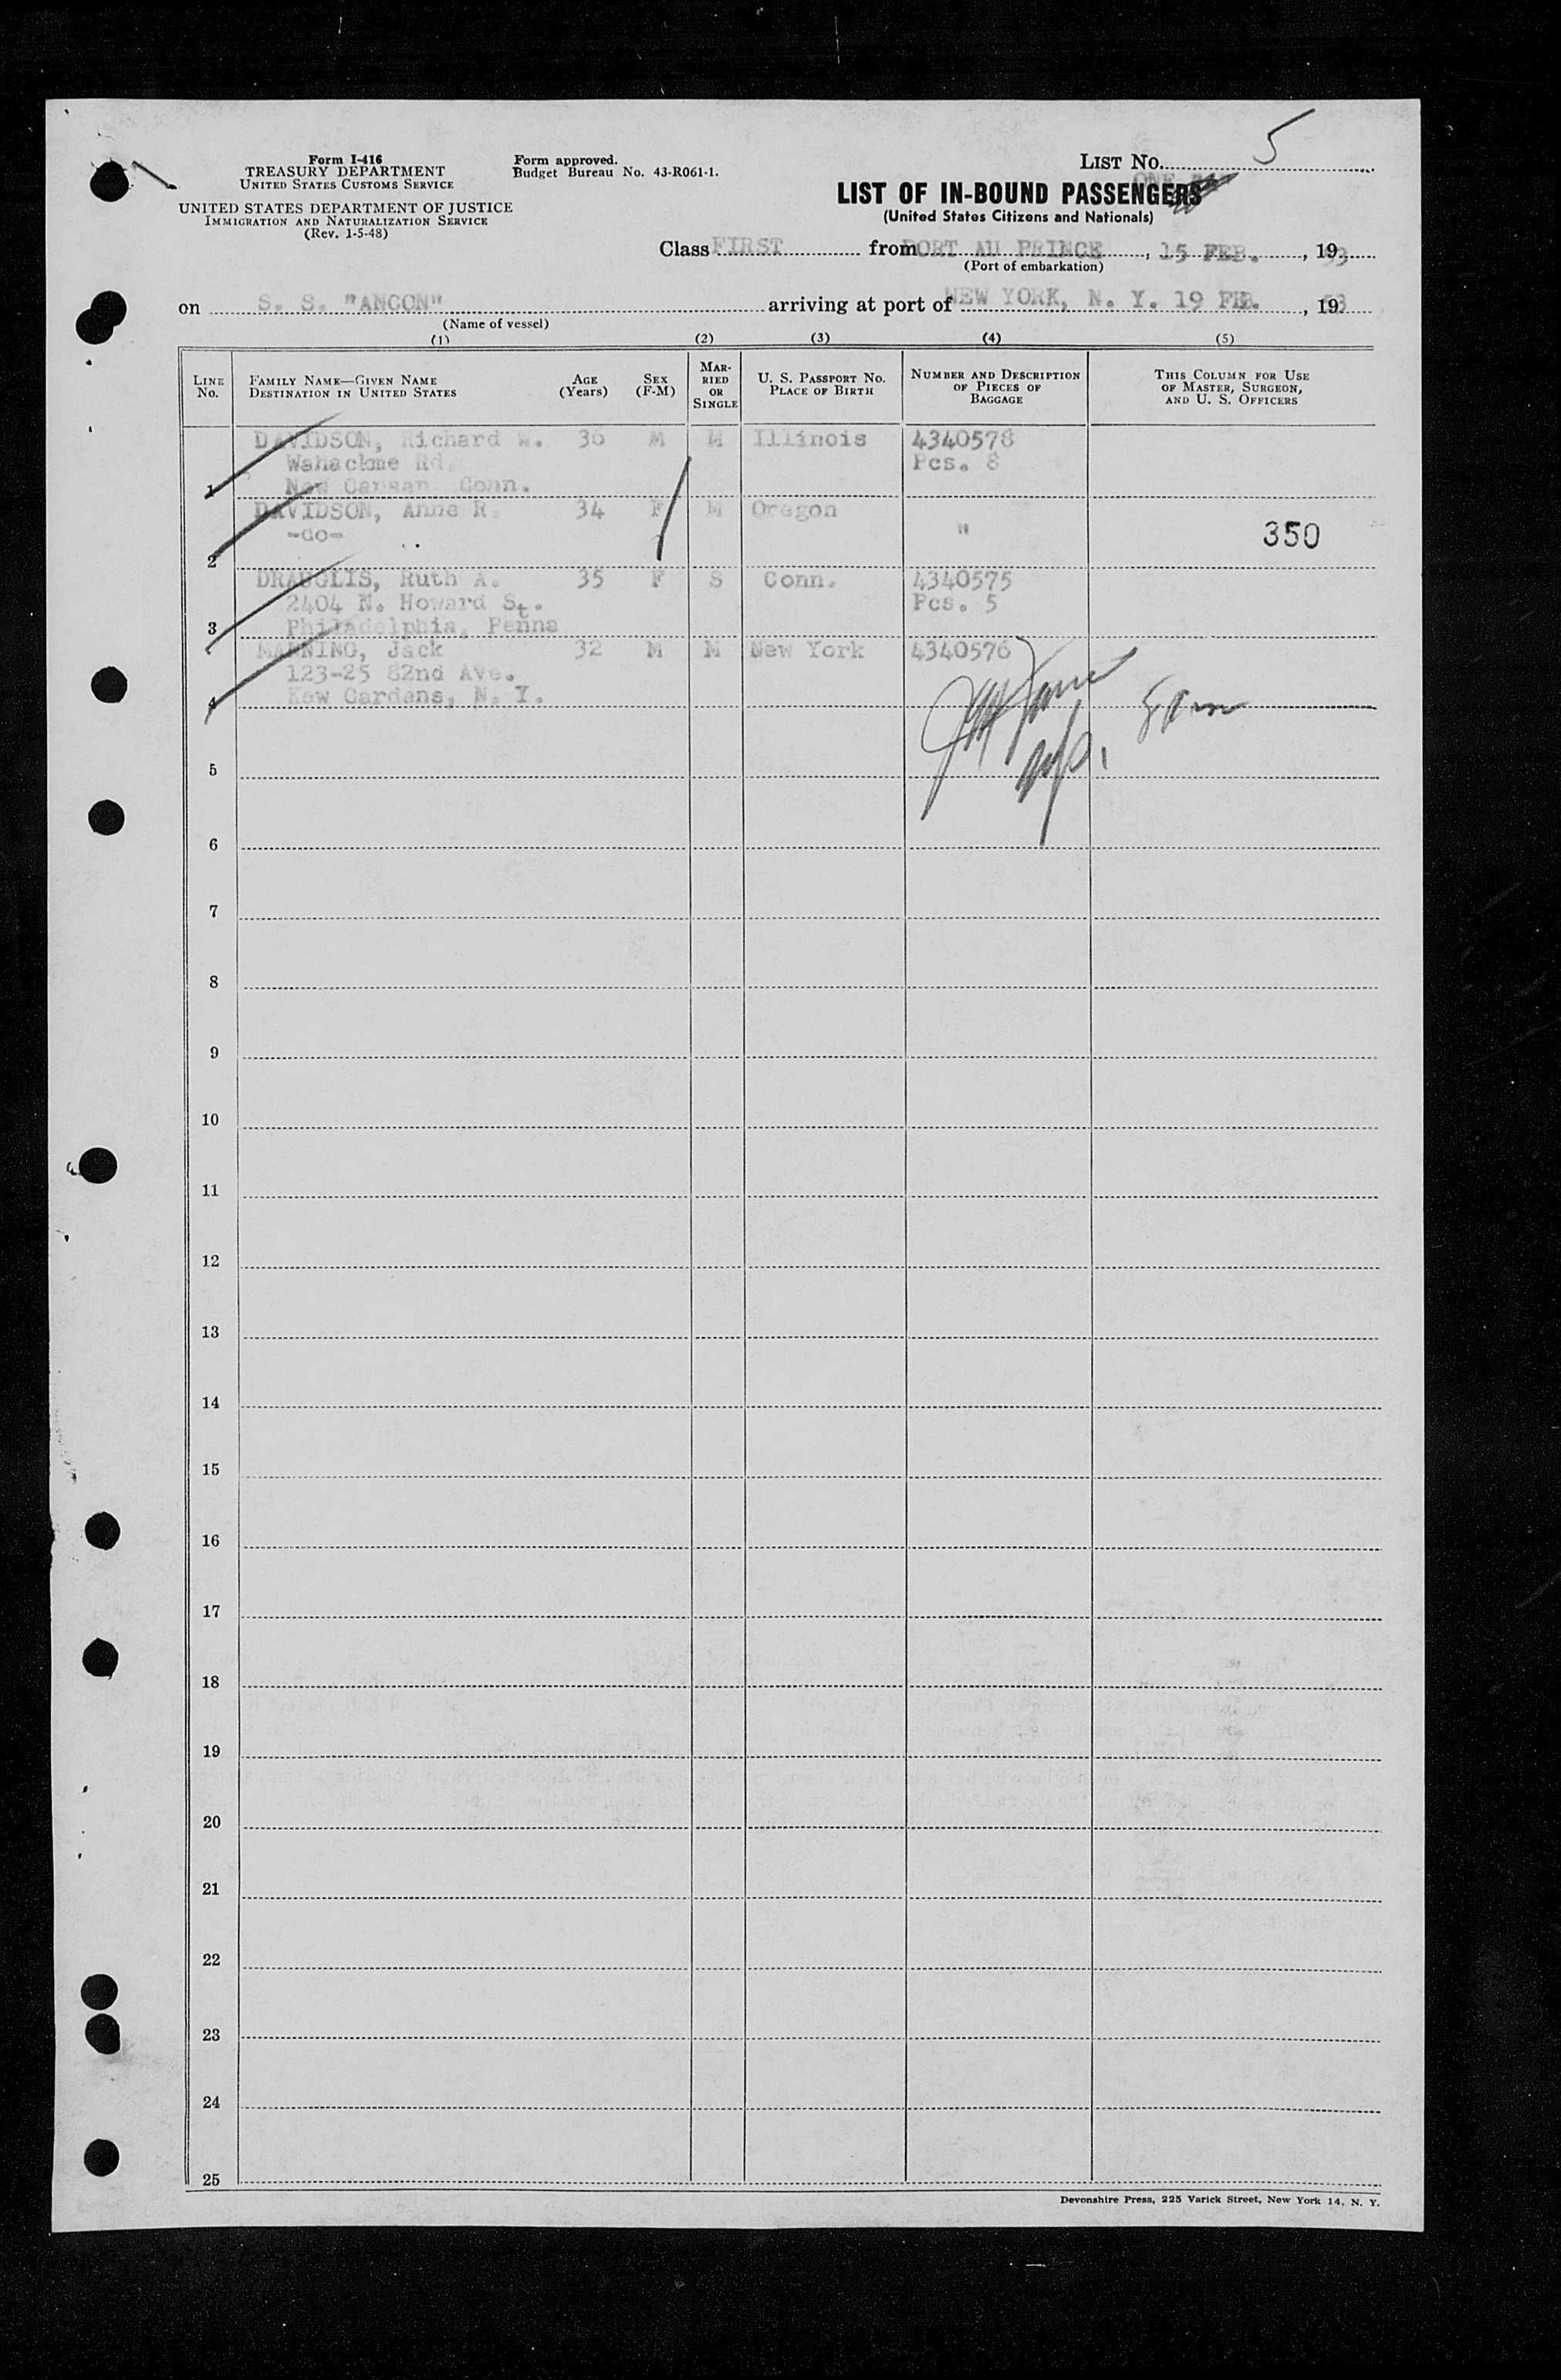 Form I-416
TREASURY DEPARTMENT
UNITED STATES CUSTOMS SERVICE
UNITED STATES DEPARTMENT OF JUSTICE
IMMIGRATION AND NATURALIZATION SERVICE
(Rev. 1-5-48)
Form approved.
Budget Bureau No. 43-R061-1.
LIST No. 5
ONE
LIST OF IN-BOUND PASSENGERS
(United States Citizens and Nationals)
Class FIRST from PORT AU PRINCE, 15 FEB., 1953
(Port of embarkation)
on S. S. "ANCON" arriving at port of NEW YORK, N. Y. 19 FEB., 1953
(Name of vessel)
(1) (2) (3) (4) (5)
LINE No. FAMILY NAME—GIVEN NAME DESTINATION IN UNITED STATES AGE (Years) SEX (F-M) MARRIED OR SINGLE U. S. PASSPORT No. PLACE OF BIRTH NUMBER AND DESCRIPTION OF PIECES OF BAGGAGE THIS COLUMN FOR USE OF MASTER, SURGEON, AND U. S. OFFICERS
DAVIDSON, Richard W. 36 M M Illinois 4340578
Wahackme Rd. Pcs. 8
1 New Canaan Conn.
DAVIDSON, Anne R. 34 F M Oregon
-do- " 350
2
DRAUGLIS, Ruth A. 35 F S Conn. 4340575
2404 N. Howard St. Pcs. 5
3 Philadelphia, Penna
MANNING, Jack 32 M M New York 4340576
123-25 82nd Ave.
4 Kew Gardens, N. Y.
5
6
7
8
9
10
11
12
13
14
15
16
17
18
19
20
21
22
23
24
25
Devonshire Press, 225 Varick Street, New York 14, N. Y.